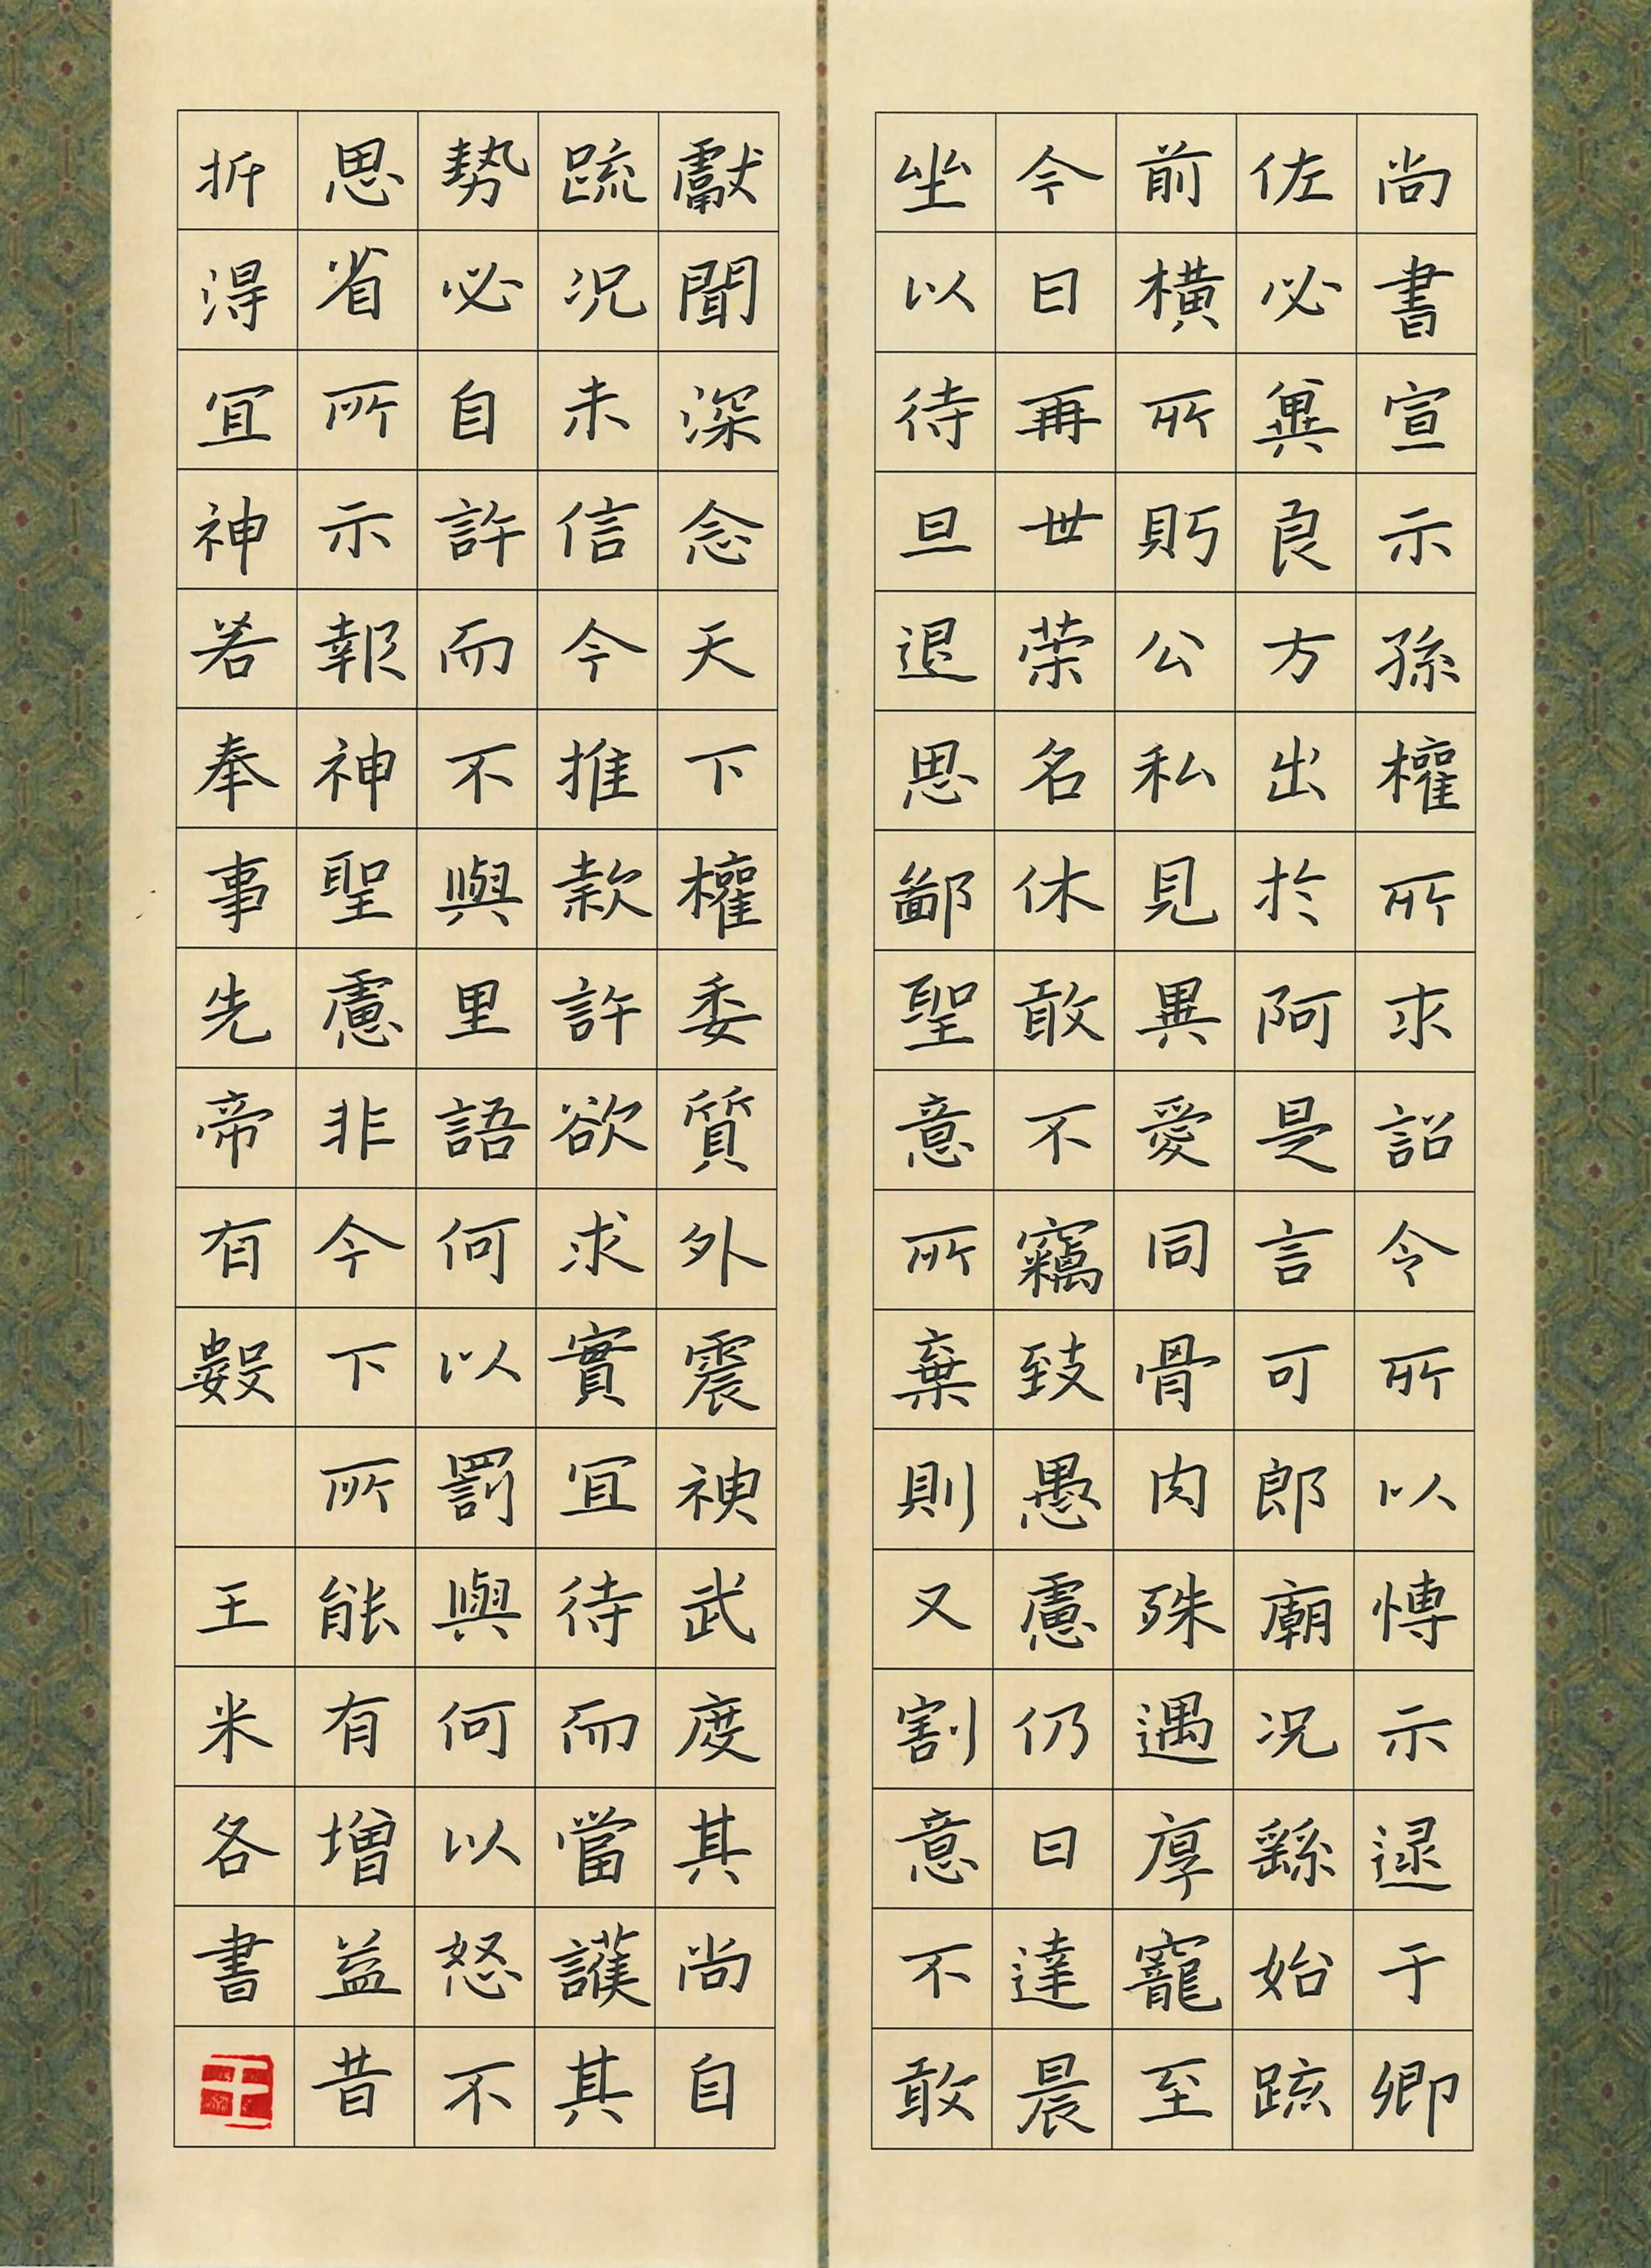 尚書宣示孫權所求詔令所以愽示逮于卿
佐必兾良方出於阿是言可郎廟况繇始踈
前橫所眄公私見異愛同骨肉殊遇厚寵至
今日再世荣名休敢不竊致愚慮仍日達晨
坐以待旦退思鄙聖意所棄則又割意不敢
獻聞深念天下權委質外震神武度其尚自
疏况未信今推款許欲求實宜待而當護其
勢必自許而不與里語何以罰與何以怒不
思省所示報神聖慮非今下所能有增益昔
折得宜神若奉事先帝有數 王米各書
王